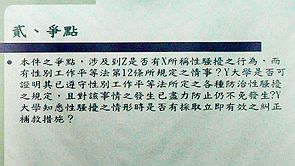 貳、爭點
• 本件之爭點，涉及到Z是否有X所稱性騷擾之行為，而
有性別工作平等法第12條所規定之情事？Y大學是否可
證明其已遵守性別工作平等法所定之各種防治性騷擾
之規定，且對該事情之發生已盡力防止仍不免發生？Y
大學知悉性騷擾之情形時是否有採取立即有效之糾正
補救措施？